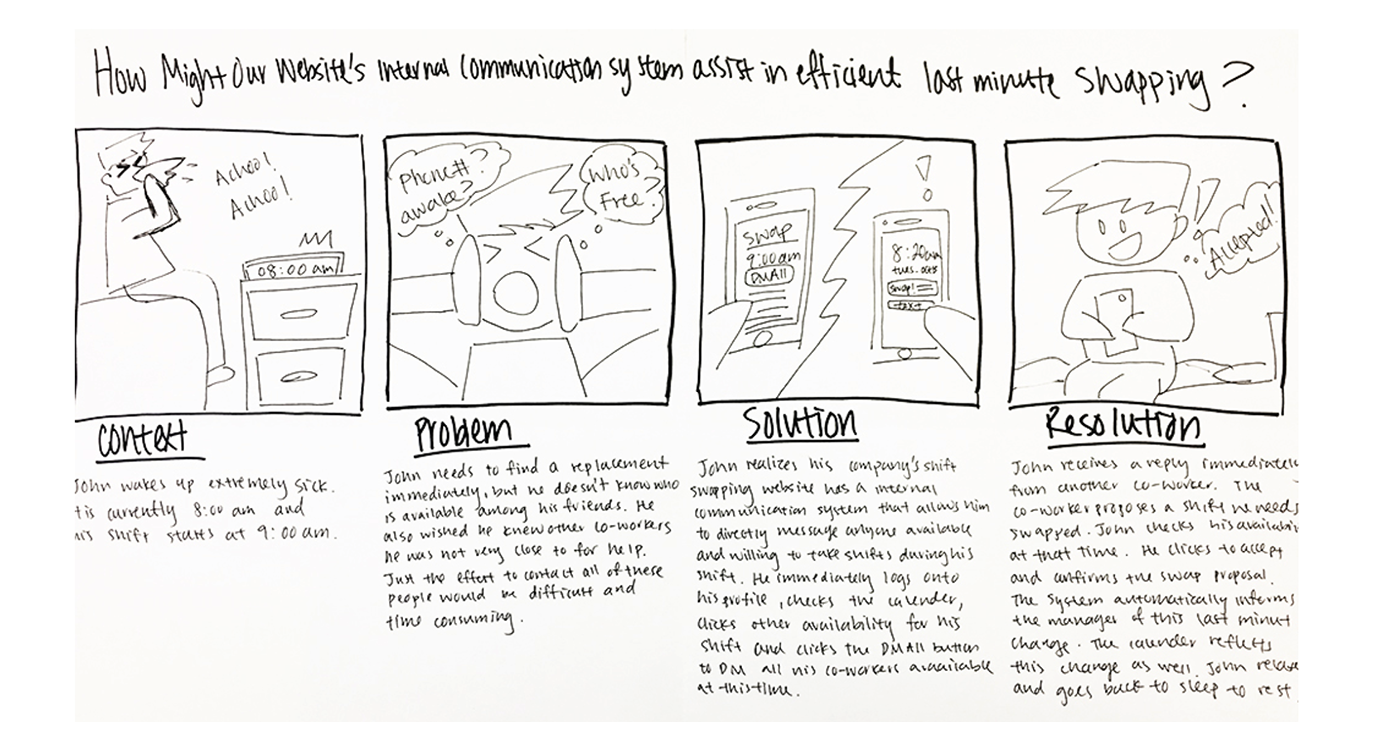 How Might Our Website's Internal Communication system assist in efficient last minute swapping?
Achoo!
Achoo!
08:00 am
phone#?
awake?
who's
Free?
swap
9:00am
DMAll
!
8:20am
tues. oct 5
swap!
text
!!
Accepted!!
Context
John wakes up extremely sick.
t is currently 8:00 am and
his shift starts at 9:00 am.
Problem
John needs to find a replacement
immediately, but he doesn't know who
is available among his friends. He
also wished he knew other co-workers
he was not very close to for help.
Just the effort to contact all of these
people would be difficult and
time consuming.
Solution
John realizes his company's shift
swapping website has a internal
communication system that allows him
to directly message anyone available
and willing to take shifts during his
shift. He immediately logs onto
his profile, checks the calender,
clicks other availability for his
shift and clicks the DMAll button
to DM all his co-workers avaailable
at this time.
Resolution
John receives a reply immediately
from another co-worker. The
co-worker proposes a shift he needs
swapped. John checks his availabi
at that time. He clicks to accept
and confirms the swap proposal.
The system automatically informs
the manager of this last minut
change. The calender reflects
this change as well. John relaxe
and goes back to sleep to rest.